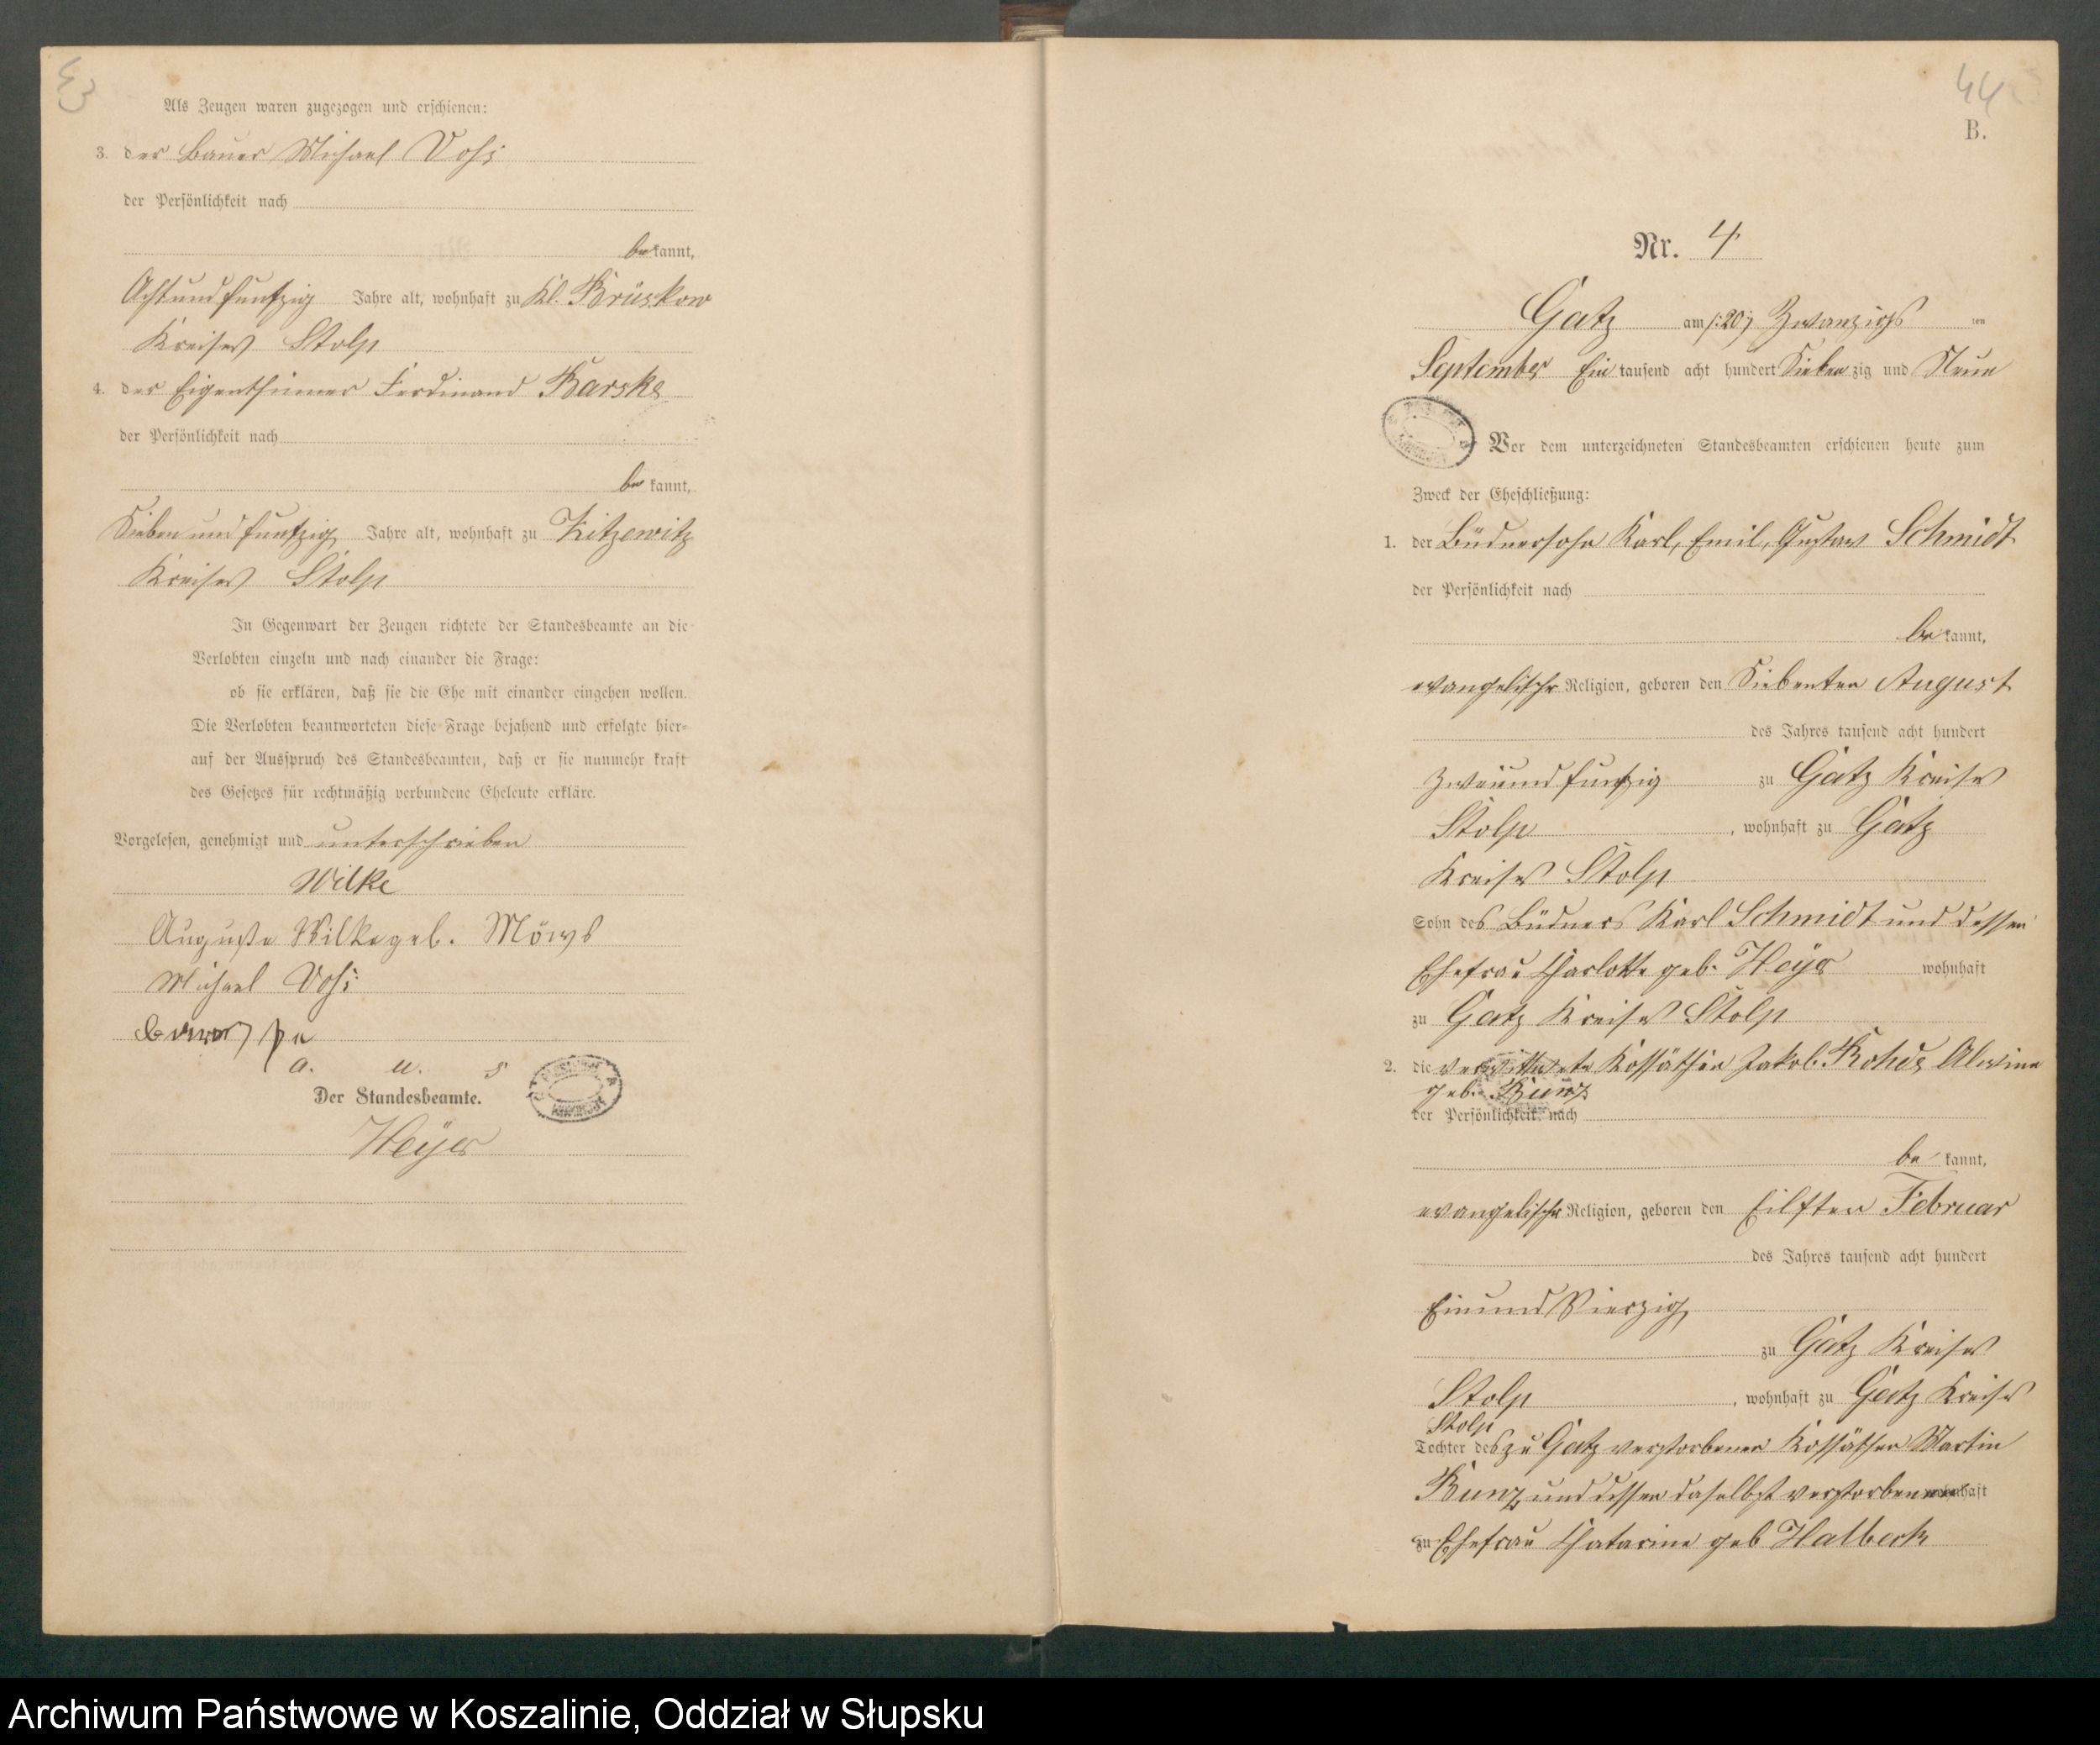 43
Als Zeugen waren zugezogen und erschienen:
3. der Bauer Michael Voß
der Persönlichkeit nach
be kannt,
Achtundfunfzig Jahre alt, wohnhaft zu Kl. Brüskow
Kreises Stolp
4. der Eigenthümer Ferdinand Barske
der Persönlichkeit nach
be kannt,
Siebenundfunfzig Jahre alt, wohnhaft zu Zitzewitz
Kreises Stolp
In Gegenwart der Zeugen richtete der Standesbeamte an die
Verlobten einzeln und nach einander die Frage:
ob sie erklären, daß sie die Ehe mit einander eingehen wollen.
Die Verlobten beantworteten diese Frage bejahend und erfolgte hier-
auf der Ausspruch des Standesbeamten, daß er sie nunmehr kraft
des Gesetzes für rechtmäßig verbundene Eheleute erkläre.
Vorgelesen, genehmigt und unterschrieben
Wilke
Auguste Wilke geb. Möws
Michael Voß
a. u. s
Der Standesbeamte.
Heyer
44
B.
Nr. 4
Gatz am /:20:/ Zwanzigs ten
September Ein tausend acht hundert Sieben zig und Neun
Vor dem unterzeichneten Standesbeamten erschienen heute zum
Zweck der Eheschließung:
1. der Büdnersohn Karl, Emil, Gustav Schmidt
der Persönlichkeit nach
be kannt,
evangelischer Religion, geboren den Siebenten August
des Jahres tausend acht hundert
Zweiundfunfzig zu Gatz Kreises
Stolp, wohnhaft zu Gatz
Kreises Stolp
Sohn des Büdners Karl Schmidt und dessen
Ehefrau Charlotte geb. Heyer wohnhaft
zu Gatz Kreises Stolp
2. die verwittwete Kossäthin Jakob Rohde Alwine
geb. Kunz
der Persönlichkeit nach
be kannt,
evangelischer Religion, geboren den Eilften Februar
des Jahres tausend acht hundert
Einund Vierzig
zu Gatz Kreises
Stolp, wohnhaft zu Gatz Kreises
Stolp
Tochter des zu Gatz verstorbenen Kossäthen Martin
Kunz und dessen daselbst verstorbenen wohnhaft
zu Ehefrau Chatarine geb Halbeck
Archiwum Państwowe w Koszalinie, Oddział w Słupsku